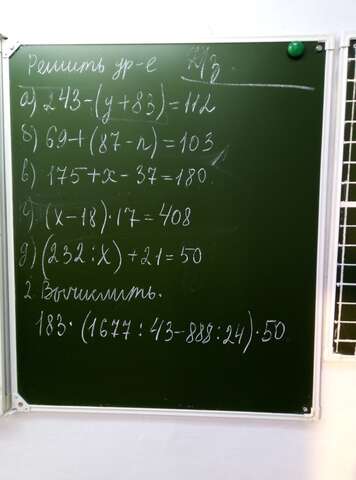 Решить ур-е
а) 243-(y+83)=112
б) 69+(87-n)=103
в) 175+x-37=180.
г) (x-18)·17=408
д) (232:x)+21=50
2. Вычислить.
183·(1677:43-888:24)·50